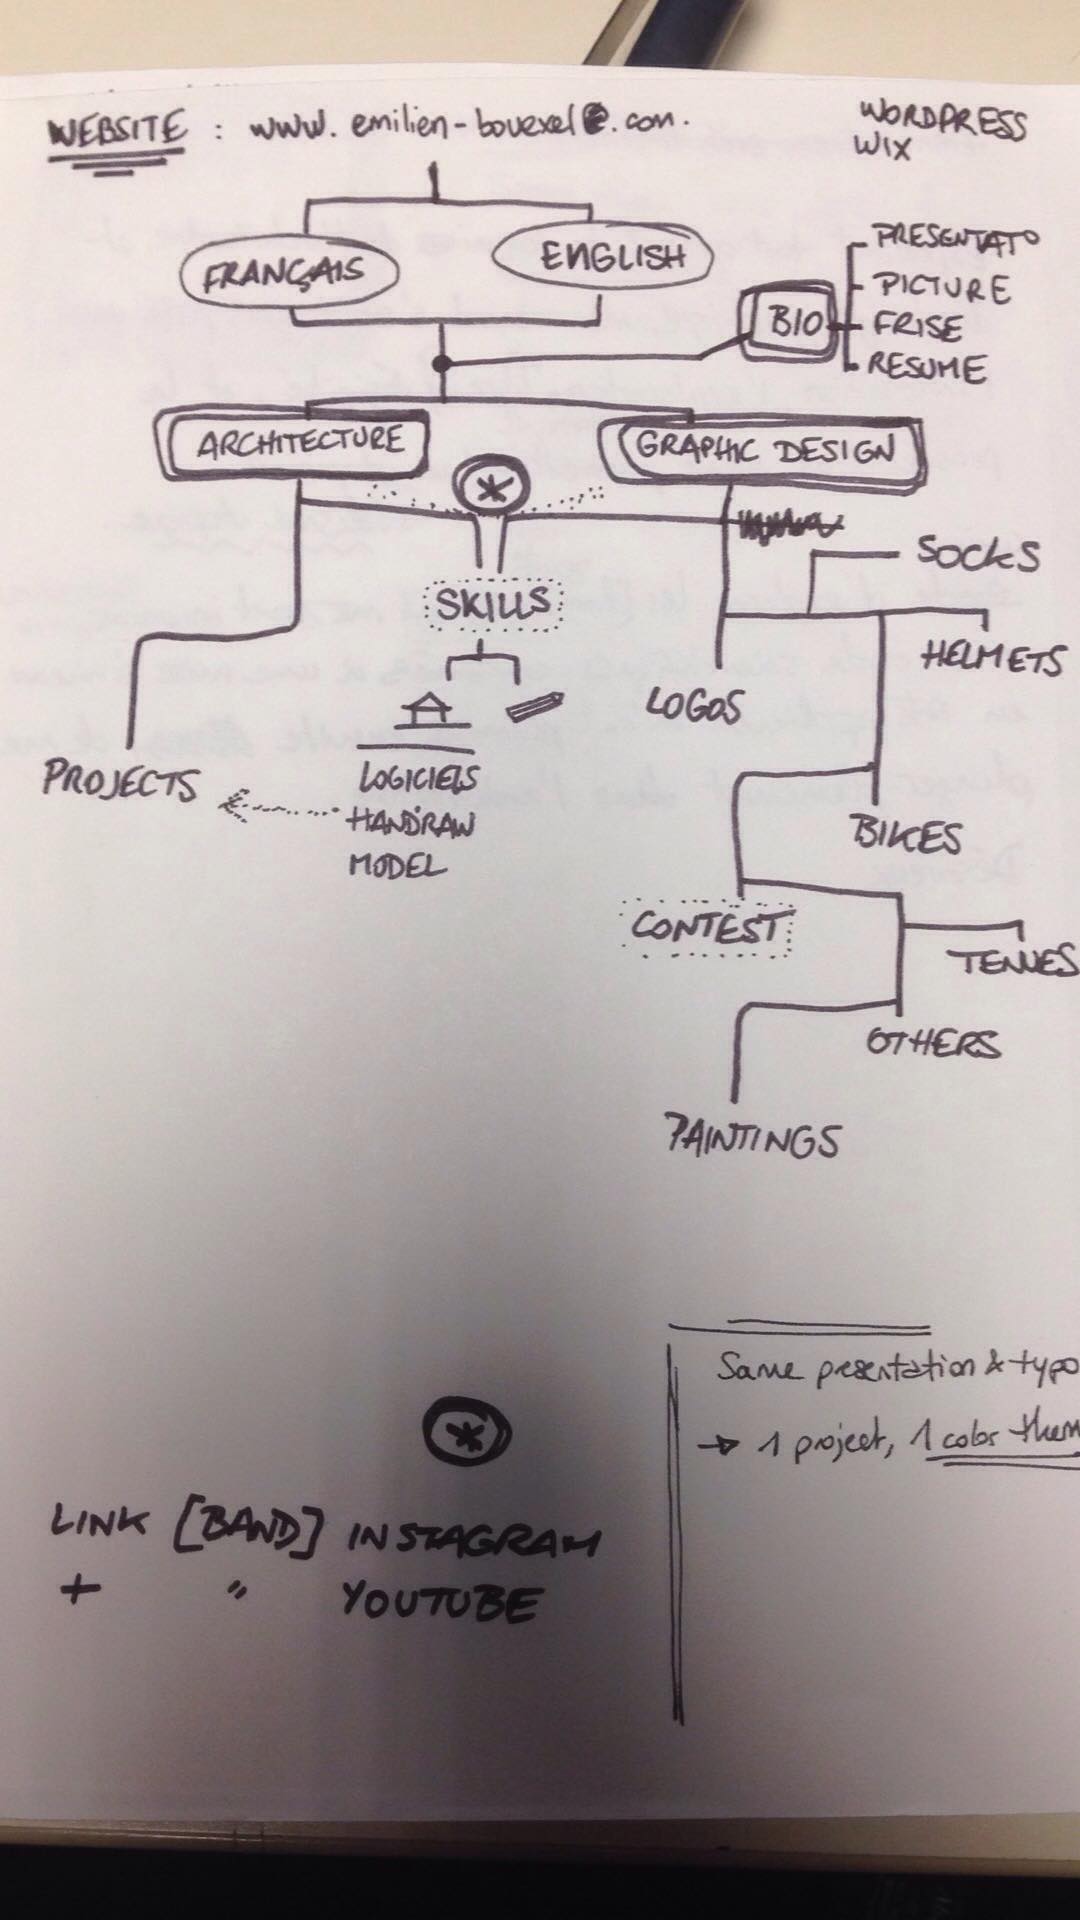 WEBSITE : www. emilien-bouexel .com.
WORDPRESS
WIX
FRANÇAIS
ENGLISH
BIO
PRESENTATO
PICTURE
FRISE
RESUME
ARCHITECTURE
GRAPHIC DESIGN
*
SKILLS
SOCKS
HELMETS
LOGOS
PROJECTS
LOGICIELS
HANDRAW
MODEL
BIKES
CONTEST
TENUES
OTHERS
PAINTINGS
Same presentation & typo
→ 1 project, 1 color them
*
LINK [BAND] INSTAGRAM
+ " YOUTUBE